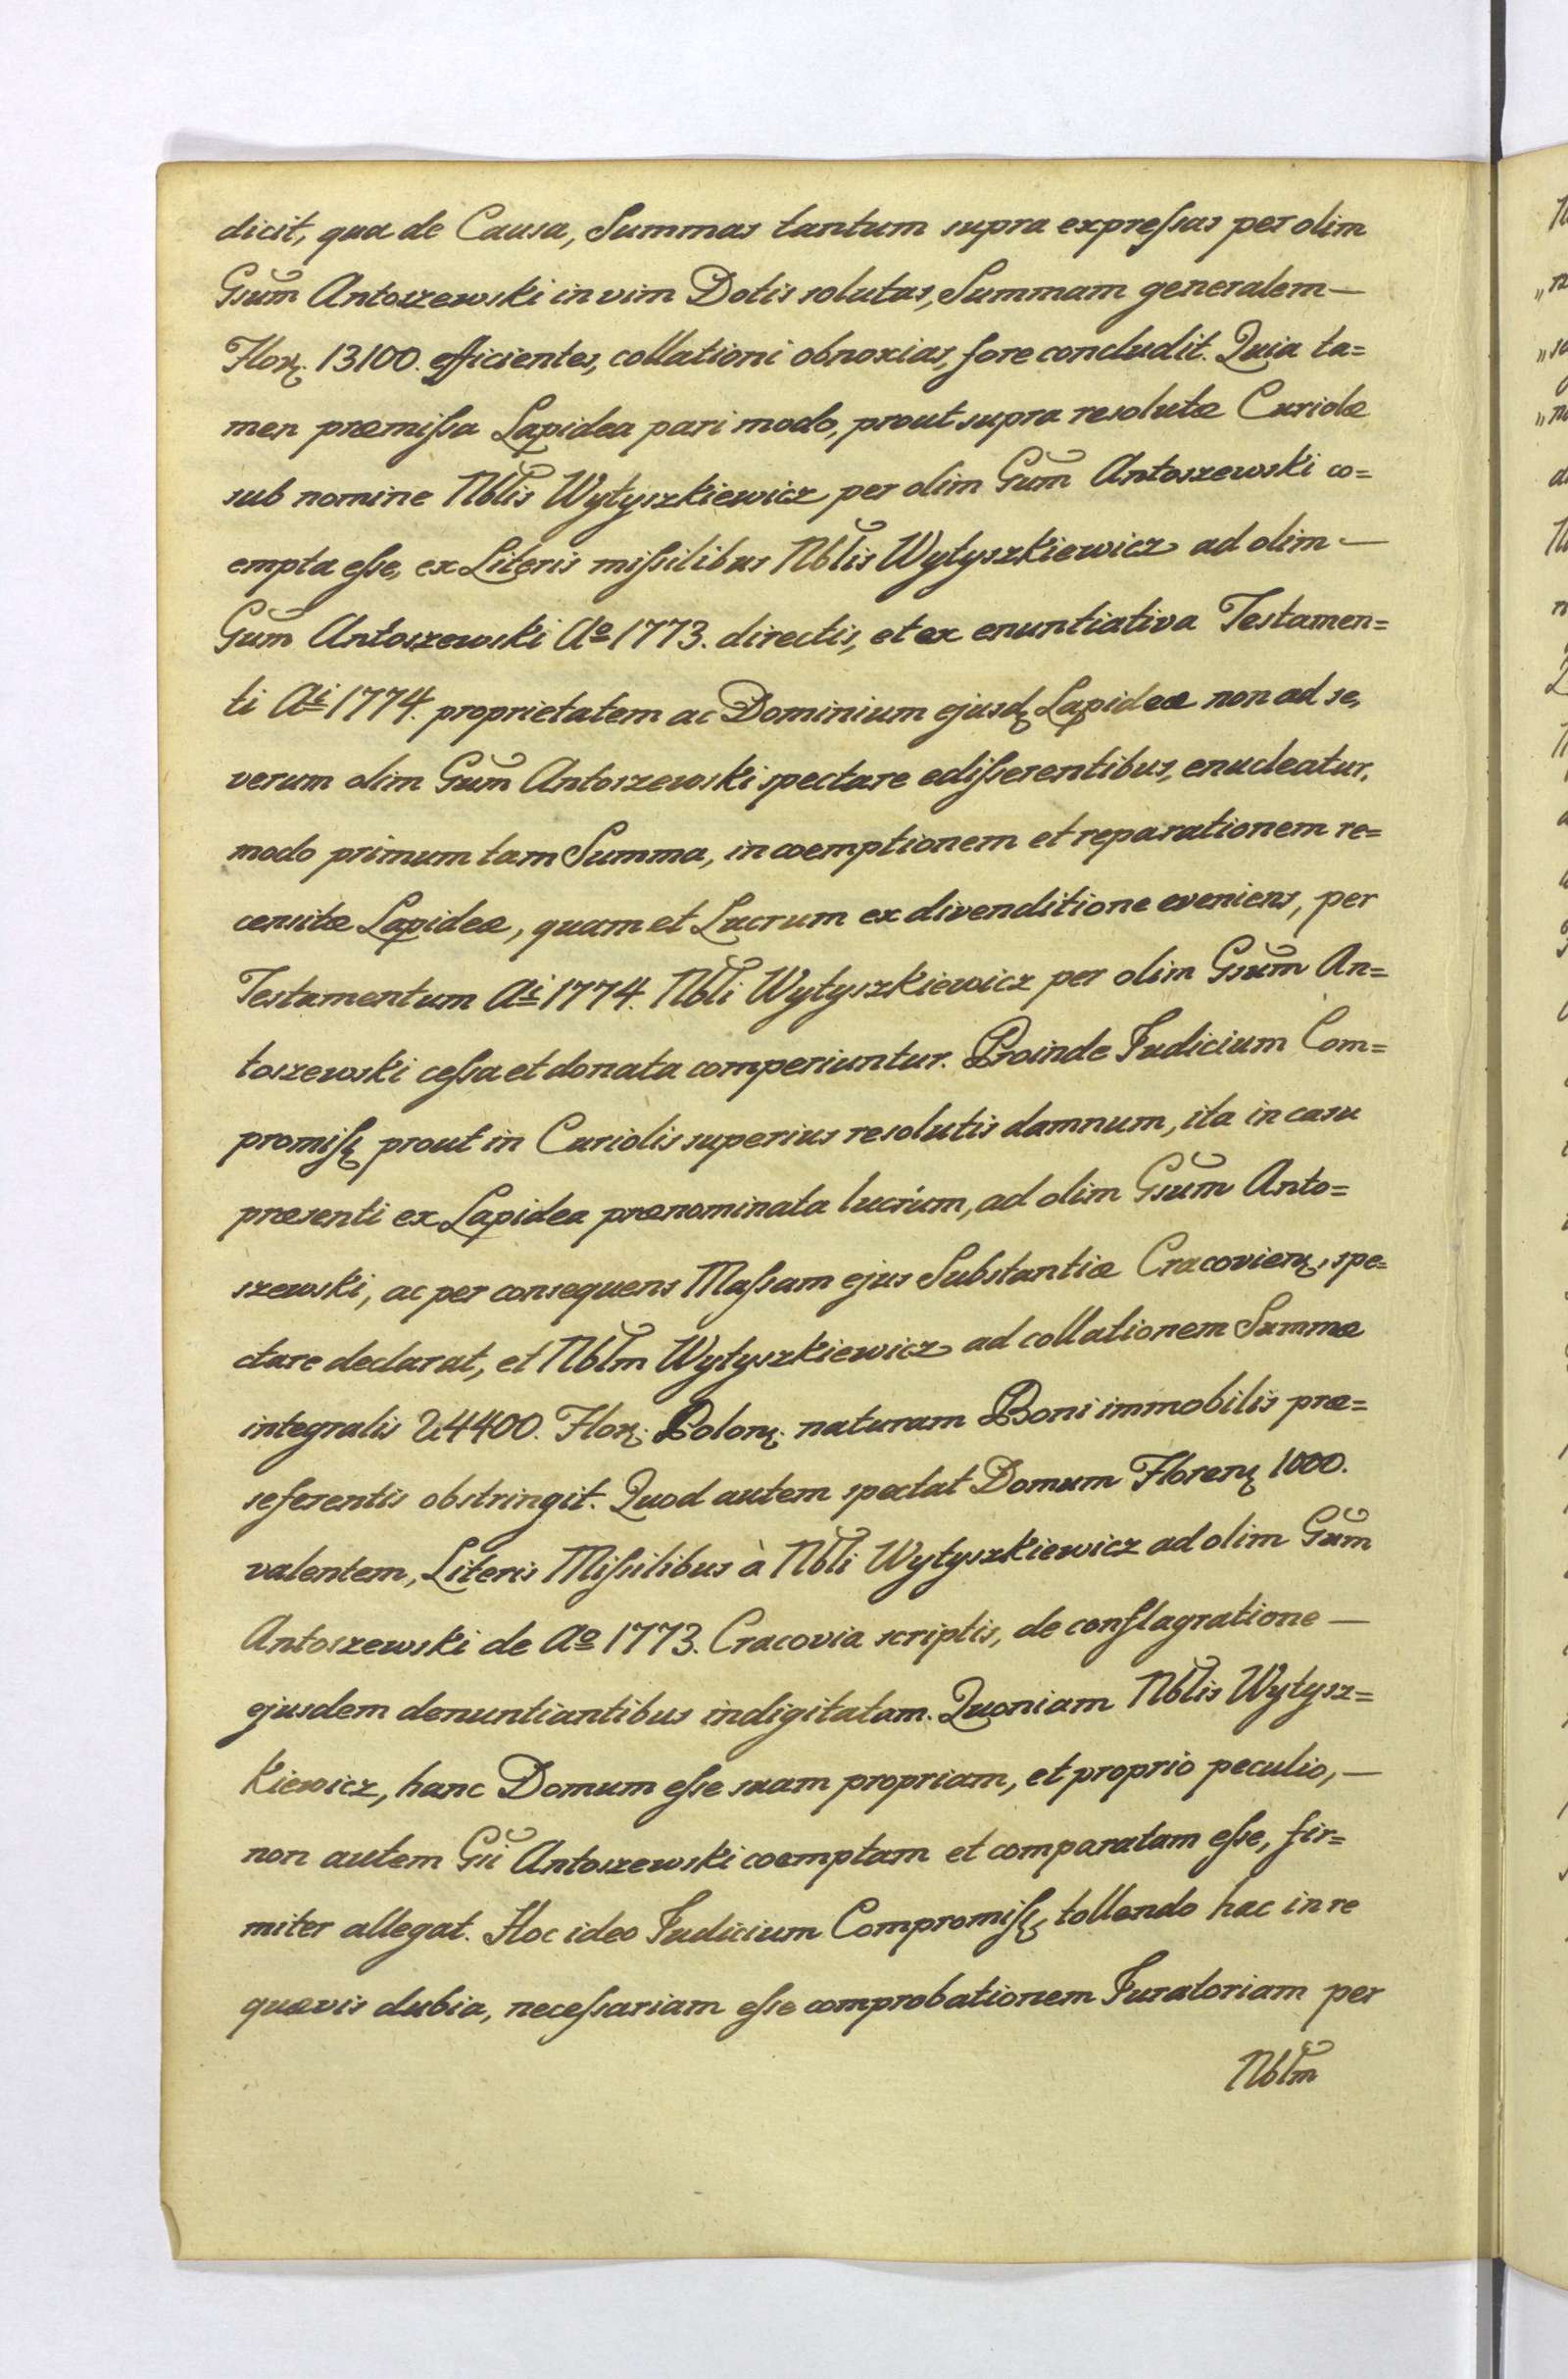 dicit, qua de Causa, Summas tantum supra expreſsas per olim
Gsum̃ Antoszewski in vim Dotis solutas, Summam generalem—
Flor. 13100. efficientes, collationi obnoxias, fore concludit. Quia ta=
men præmiſsa Lapidea pari modo, prout supra resolutæ Curiolæ
sub nomine Nbl̃is Wytyszkiewicz per olim Gum̃ Antoszewski co=
empta eſse, ex Literis miſsilibus Nbl̃is Wytyszkiewicz ad olim—
Gum̃ Antoszewski Aº 1773. directis, et ex enuntiativa Testamen=
ti Ai 1774. proprietatem ac Dominium ejusd. Lapideæ non ad se,
verum olim Gum̃ Antoszewski spectare ediſserentibus, enucleatur,
modo primum tam Summa, in coemptionem et reparationem re=
censitæ Lapideæ, quam et Lucrum ex divenditione eveniens, per
Testamentum Ai 1774. Nbl̃i Wytyszkiewicz per olim Gsum̃ An=
toszewski ceſsa et donata comperiuntur. Proinde Judicium Com=
promiſs. prout in Curiolis superius resolutis damnum, ita in casu
præsenti ex Lapidea prænominata lucrum, ad olim Gsum̃ Anto=
szewski, ac per consequens Maſsam ejus Substantiæ Cracovien., spe=
ctare declarat, et Nbl̃m Wytyszkiewicz ad collationem Summæ
integralis 24400. Flor. Polon. naturam Boni immobilis præ=
seferentis obstringit. Quod autem spectat Domum Floren. 1000.
valentem, Literis Miſsilibus à Nbl̃i Wytyszkiewicz ad olim Gum̃
Antoszewski de Aº 1773. Cracovia scriptis, de conflagratione—
ejusdem denuntiantibus indigitatam. Quoniam Nbl̃is Wytysz=
kiewicz, hanc Domum eſse suam propriam, et proprio peculio,—
non autem Giĩ Antoszewski coemptam et comparatam eſse, fir=
miter allegat. Hoc ideo Judicium Compromiſs. tollendo hac in re
quævis dubia, neceſsariam eſse comprobationem Juratoriam per
Nbl̃m